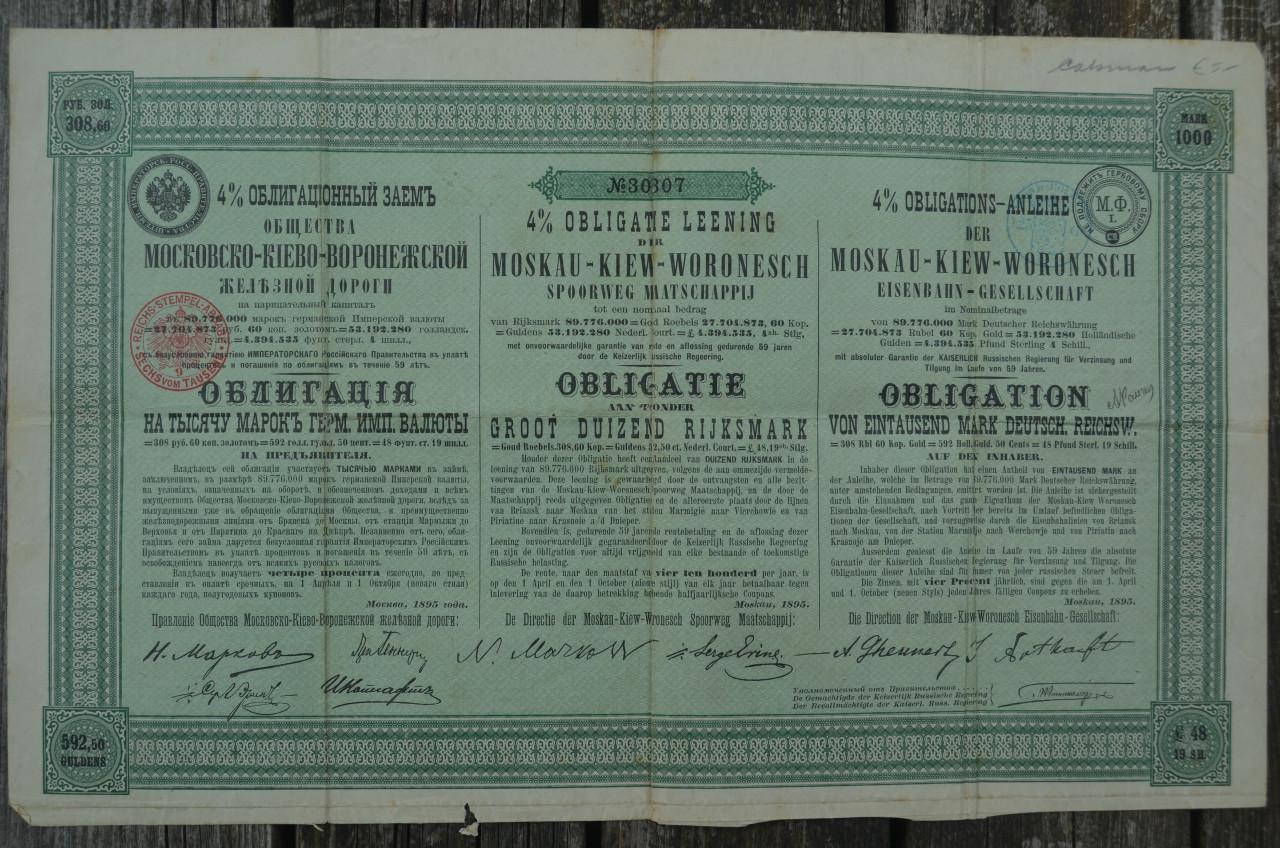 РУБ. ЗОЛ.
308,60
МАРК
1000
№30307
4% ОБЛИГАЦIОННЫЙ ЗАЕМЪ
ОБЩЕСТВА
МОСКОВСКО-КIЕВО-ВОРОНЕЖСКОЙ
ЖЕЛѢЗНОЙ ДОРОГИ
на нарицательный капиталъ
въ 89.776.000 марокъ германской Имперской валюты
=27.704.873 руб. 60 коп. золотомъ=53.192.280 голландск.
=4.394.535 фунт. стерл. 4 шилл.,
съ безусловною гарантiею ИМПЕРАТОРСКАГО Россiйскаго Правительства въ уплатѣ
процентовъ и погашенiя по облигацiямъ въ теченiе 59 лѣтъ.
REICHS-STEMPEL-ABGABE
SECHS VOM TAUSEND
9
ОБЛИГАЦIЯ
НА ТЫСЯЧУ МАРОКЪ ГЕРМ. ИМП. ВАЛЮТЫ
=308 руб. 60 коп. золотомъ=592 голл. гульд. 50 цент.=48 фунт. ст. 19 шилл.
НА ПРЕДЪЯВИТЕЛЯ.
Владѣлецъ сей облигацiи участвуетъ ТЫСЯЧЬЮ МАРКАМИ въ займѣ,
заключенномъ, въ размѣрѣ 89.776.000 марокъ германской Имперской валюты,
на условiяхъ, означенныхъ на оборотѣ, и обезпеченномъ доходами и всѣмъ
имуществомъ Общества Московско-Кiево-Воронежской желѣзной дороги, вслѣдъ за
выпущенными уже въ обращенiе облигацiями Общества, и преимущественно
желѣзнодорожными линiями отъ Брянска до Москвы, отъ станцiи Мармыжи до
Верховья и отъ Пирятина до Краснаго на Днѣпрѣ. Независимо отъ сего, облига-
цiямъ сего займа даруется безусловная гарантiя Императорскимъ Россiйскимъ
Правительствомъ въ уплатѣ процентовъ и погашенiя въ теченiе 59 лѣтъ, съ
освобожденiемъ навсегда отъ всякихъ русскихъ налоговъ.
Владѣлецъ получаетъ четыре процента ежегодно, по пред-
ставленiи къ оплатѣ срочныхъ, на 1 Апрѣля и 1 Октября (новаго стиля)
каждаго года, полугодовыхъ купоновъ.
Москва, 1895 года.
Правленiе Общества Московско-Кiево-Воронежской желѣзной дороги:
4% OBLIGATIE LEENING
DER
MOSKAU-KIEW-WORONESCH
SPOORWEG MAATSCHAPPIJ
tot een nominaal bedrag
van Rijksmark 89.776.000=Goud Roebels 27.704.873, 60 Kop.
=Guldens 53.192.280 Nederl. Court.=£ 4.394.535, 4 sh. Stlg,
met onvoorwaardelijke garantie van rente en aflossing gedurende 59 jaren
door de Keizerlijk Russische Regeering.
OBLIGATIE
AAN TOONDER
GROOT DUIZEND RIJKSMARK
=Goud Roebels.308,60 Kop.=Guldens 592,50 ct. Nederl. Court.=£ 48,19 sh. Stlg.
Houder dezer Obligatie heeft een aandeel van DUIZEND RIJKSMARK in de
leening van 89.776.000 Rijksmark uitgegeven, volgens de aan ommezijde vermelde-
voorwaarden. Deze leening is gewaarborgd door de ontvangsten en alle bezit-
tingen van de Moskau-Kiew-Woronesch spoorweg Maatschappij, en na de door de
Maatschappij reeds uitgegeven Obligatien, en in de allereerste plaats door de lijnen
van Briansk naar Moskau van het station Marmigie naar Vierchowie en van
Piriatine naar Krasnoie a/d Dnieper.
Bovendien is, gedurende 59 jaren de rentebetaling en de aflossing dezer
Leening onvoorwaardelijk gegarandeerd door de Keizerlijk Russische Regeering
en zijn de Obligatien voor altijd vrijgesteld van elke bestaande of toekomstige
Russische belasting.
De rente, naar den maatstaf van vier ten honderd per jaar, is
op den 1 April en den 1 October (nieuwe stijl) van elk jaar betaalbaar tegen
inlevering van de daarop betrekking hebbende halfjaarlijksche Coupons.
Moskau, 1895.
De Directie der Moskau-Kiew-Woronesch Spoorweg Maatschappij:
4% OBLIGATIONS-ANLEIHE
DER
MOSKAU-KIEW-WORONESCH
EISENBAHN-GESELLSCHAFT
im Nominalbetrage
von 89.776.000 Mark Deutscher Reichswährung
=27.704.873 Rubel 60 Kop. Gold =53.192.280 Holländische
Gulden =4.394.535 Pfund Sterling 4 Schill.,
mit absoluter Garantie der KAISERLICH Russischen Regierung für Verzinsung und
Tilgung im Laufe von 59 Jahren.
НЕ ПОДЛЕЖИТЪ ГЕРБОВОМУ СБОРУ
М.Ф.
OBLIGATION
VON EINTAUSEND MARK DEUTSCH. REICHSW.
=308 Rbl 60 Kop. Gold =592 Holl. Guld. 50 Cents =48 Pfund Sterl. 19 Schill.
AUF DEN INHABER.
Inhaber dieser Obligation hat einen Antheil von EINTAUSEND MARK an
der Anleihe, welche im Betrage von 89.776.000 Mark Deutscher Reichswährung,
unter umstehenden Bedingungen, emittirt worden ist. Die Anleihe ist sichergestellt
durch die Einnahmen und das ganze Eigenthum der Moskau-Kiew-Woronesch
Eisenbahn-Gesellschaft, nach Vortritt der bereits im Umlauf befindlichen Obliga-
tionen der Gesellschaft, und vorzugsweise durch die Eisenbahnlinien von Briansk
nach Moskau, von der Station Marmigie nach Werchowje und von Piriatin nach
Krasnoje am Dnieper.
Ausserdem geniesst die Anleihe im Laufe von 59 Jahren die absolute
Garantie der Kaiserlich Russischen Regierung für Verzinsung und Tilgung. Die
Obligationen dieser Anleihe sind für immer von jeder russischen Steuer befreit.
Die Zinsen, mit vier Procent jährlich, sind gegen die am 1. April
und 1. October (neuen Styls) jeden Jahres fälligen Coupons zu erheben.
Moskau, 1895.
Die Direction der Moskau-Kiew-Woronesch Eisenbahn-Gesellschaft:
Н. Маркова
N. Markow
Уполномоченный отъ Правительства......
De Gemachtigde der Keizerlijk Russische Regiering
Der Bevollmächtigte der Kaiserl. Russ. Regierung
592,50
GULDENS
£ 48
19 SH.